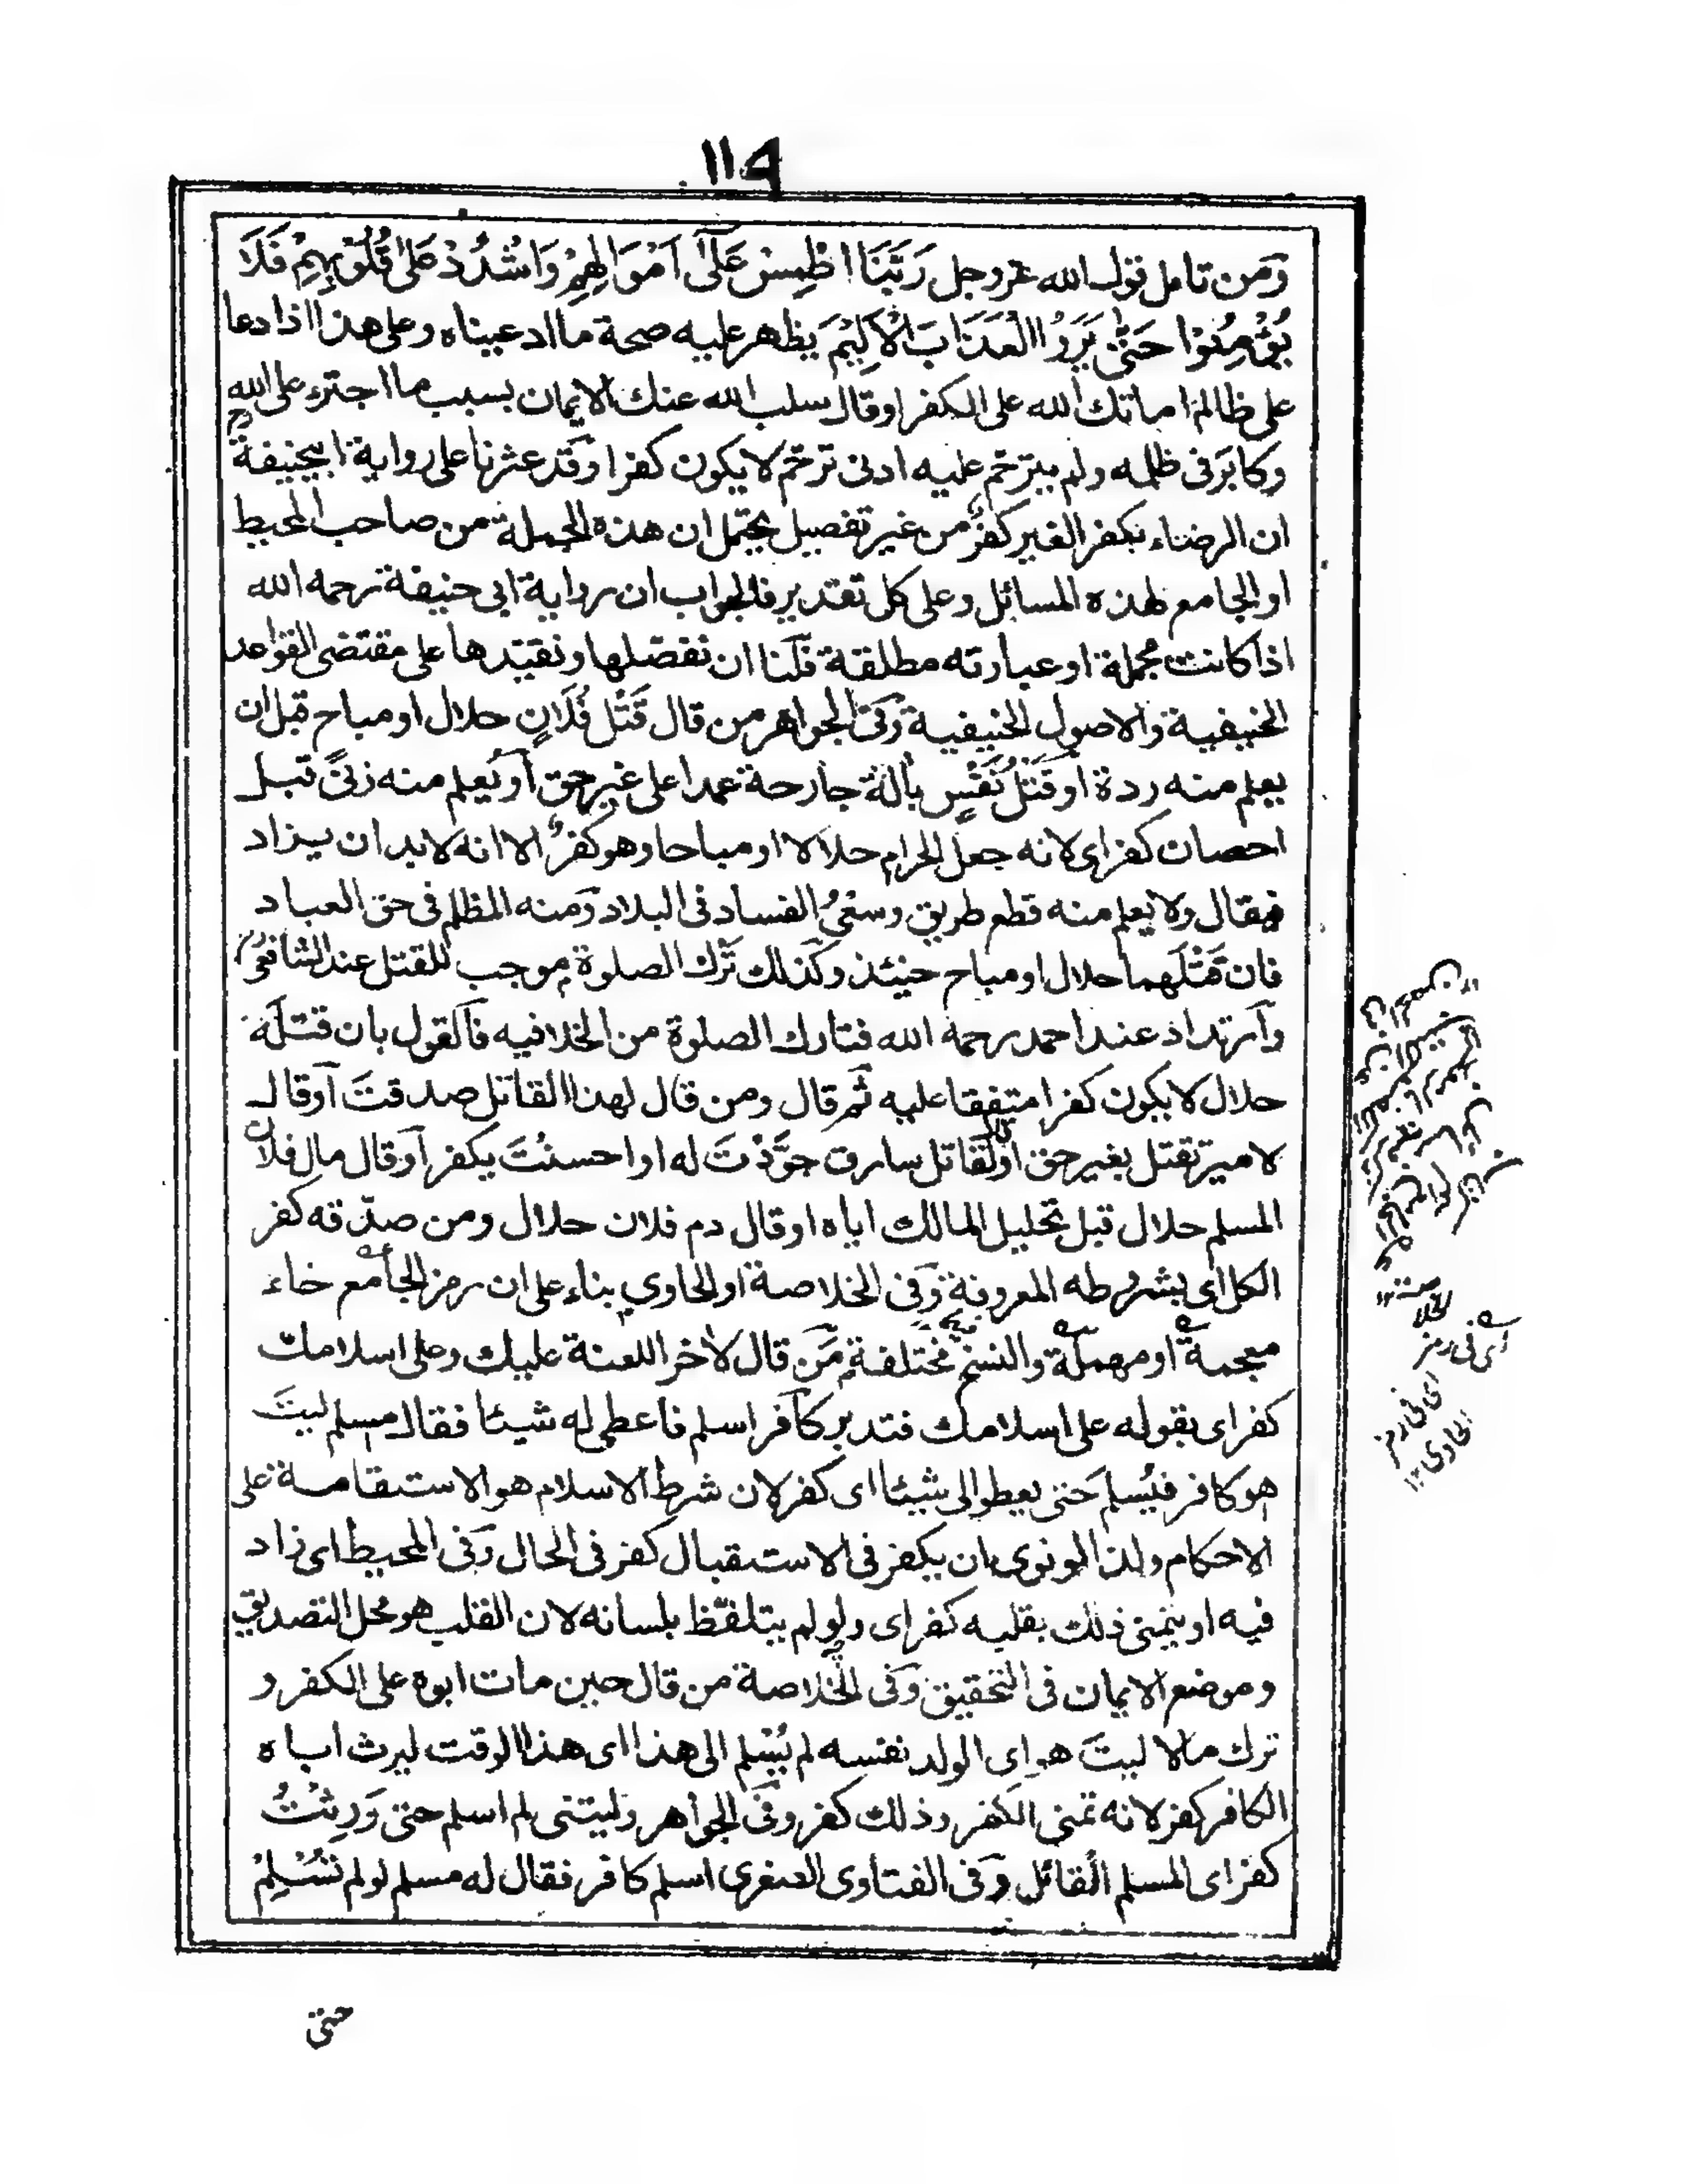 ١١٩
ومن تامل قول الله عز وجل رَبَّنَا اطْمِسْ عَلٰٓى اَمْوَالِهِمْ وَاشْدُدْ عَلٰى قُلُوْبِهِمْ فَلَا
يُؤْمِنُوْا حَتّٰى يَرَوُا الْعَذَابَ الْاَلِيْمَ يظهر عليه صحة ما ادعيناه وعلى هذا اذا دعا
على ظالم اماتك الله على الكفر او قال سلب الله عنك الايمان بسبب ما اجترء على الله
وكابر فى ظلمه ولم يترحم عليه ادنى ترحم لا يكون كفرا وقد عثرنا على رواية ابيحنيفة رح
ان الرضاء بكفر الغير كفرٌ من غير تفصيل يحتمل ان هذه الجملة من صاحب المحيط
او الجامع لهذه المسائل وعلى كل تقدير فالجواب ان رواية ابى حنيفة رحمه الله
اذا كانت مجملة او عبارته مطلقة فلنا ان نفصّلها ونقيّدها على مقتضى القواعد
الحنيفية والاصول الحنيفية وفى الجواهر من قال قَتْل فُلَانٍ حلال او مباح قبل ان
يعلم منه ردة او قَتْلُ نَفْسٍ بآلة جارحة عمدا على غير حق او يعلم منه زنىً قبل
احصان كفر اى لانه جعل الحرام حلالا او مباحا وهو كفرٌ الا انه لابد ان يزاد
فيقال ولا يعلم منه قطع طريق وسعىُ الفساد فى البلاد ومنه المظلم فى حق العباد
فان قَتْلَهما حلال او مباح حينئذ وكذلك تَرْك الصلوة موجب للقتل عند الشافعى
وارتداد عند احمد رحمه الله فتارك الصلوة من الخلافيه فالقول بان قتله
حلال لا يكون كفرا متفقا عليه ثم قال ومن قال لهذا القاتل صدقتَ او قال
لامير تقتل بغير حق او لقاتل سارق جوَّدْتَ له او احسنْتَ يكفر او قال مال فلان
المسلم حلال قبل تحليل المالك اياه او قال دم فلان حلال ومن صدّقه كفر
الكل اى بشروطه المعروفة وفى الخلاصة او الحاوى بناء على ان رمز الجامع خاء
معجمة او مهملة والنسخ مختلفة من قال لآخر اللعنة عليك وعلى اسلامك
كفر اى بقوله على اسلامك فتدبر كافر اسلم فاعطى له شيئا فقال مسلم ليتَ
هو كافر فيُسلم حتى يعطوا لى شيئا اى كفر لان شرط الاسلام هو الاستقامة على
الاحكام ولذا لو نوى بان يكفر فى الاستقبال كفر فى الحال وفى المحيط اى زاد
فيه او يتمنى ذلك بقلبه كفر اى ولو لم يتلفّظ بلسانه لان القلب هو محل التصديق
وموضع الايمان فى التحقيق وفى الخلاصة من قال حين مات ابوه على الكفر و
ترك مالا ليتَ هو اى الولد نفسه لم يُسْلم الى هذا اى هذا الوقت ليرث اباه
الكافر كفر لانه تمنى الكفر وذلك كفر وفى الجواهر وليتنى لم اسلم حتى وَرِثْتُ
كفر اى المسلم القائل وفى الفتاوى الصغرى اسلم كافر فقال له مسلم لو لم نُسْلِمْ
حتى
اى فى رمز
الخلاصة ١٢
اى فى رمز
الحاوى ١٢